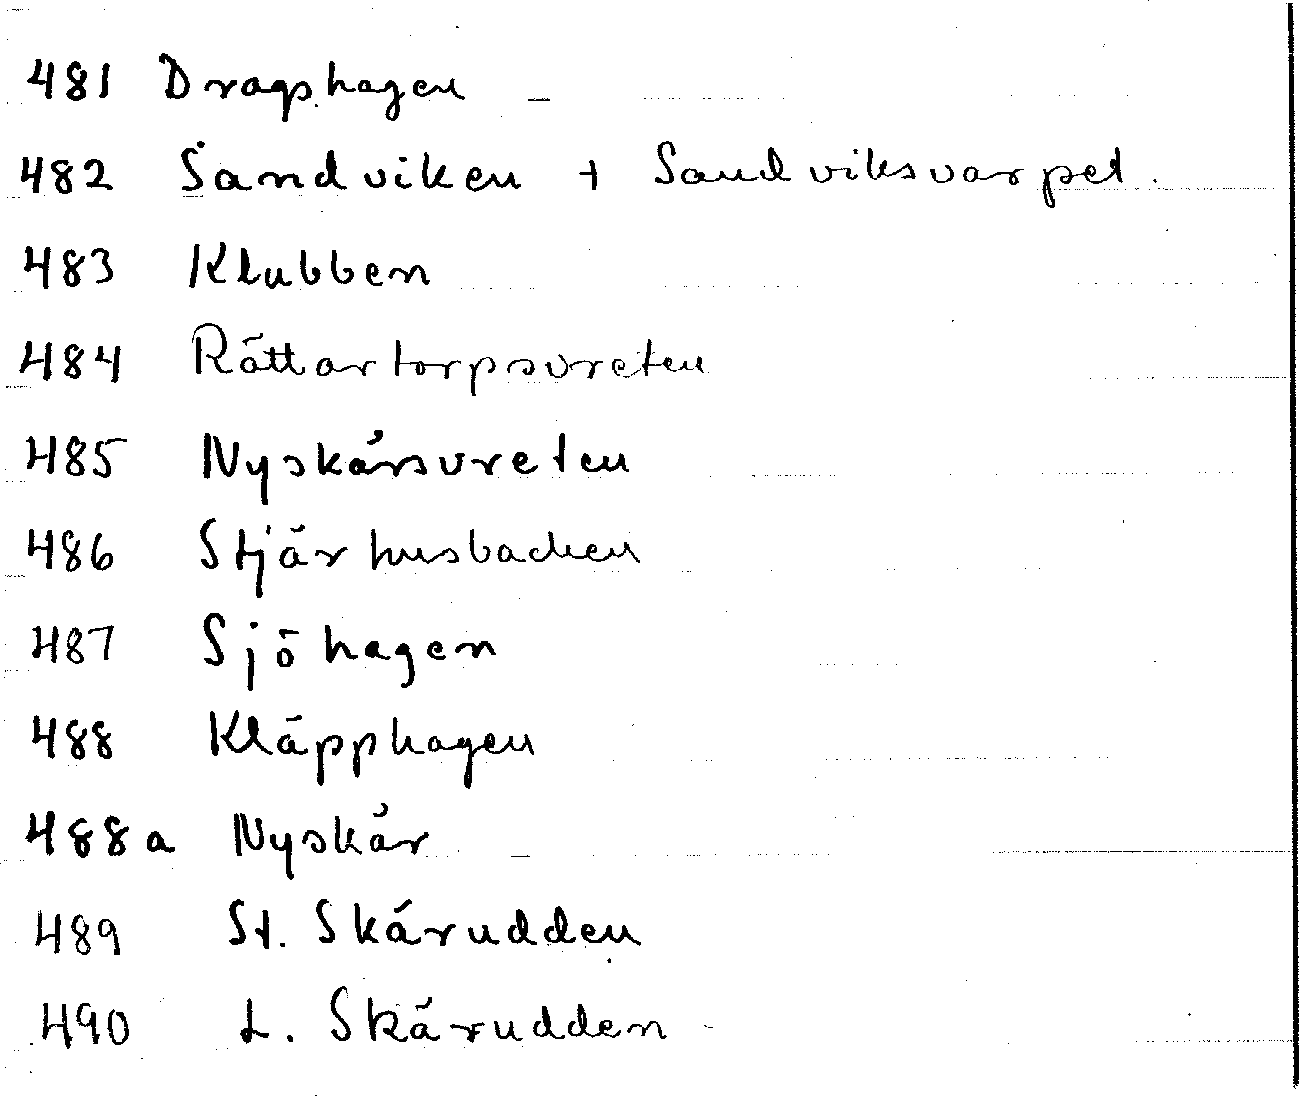 481 Dragshagen
482 Sandviken + Sandviksvarpet.
483 Klubben
484 Rättartorpsvreten
485 Nyskärsvreten
486 Stjärhusbacken
487 Sjöhagen
488 Kläpphagen
488a Nyskär
489 St. Skärudden
490 L. Skärudden